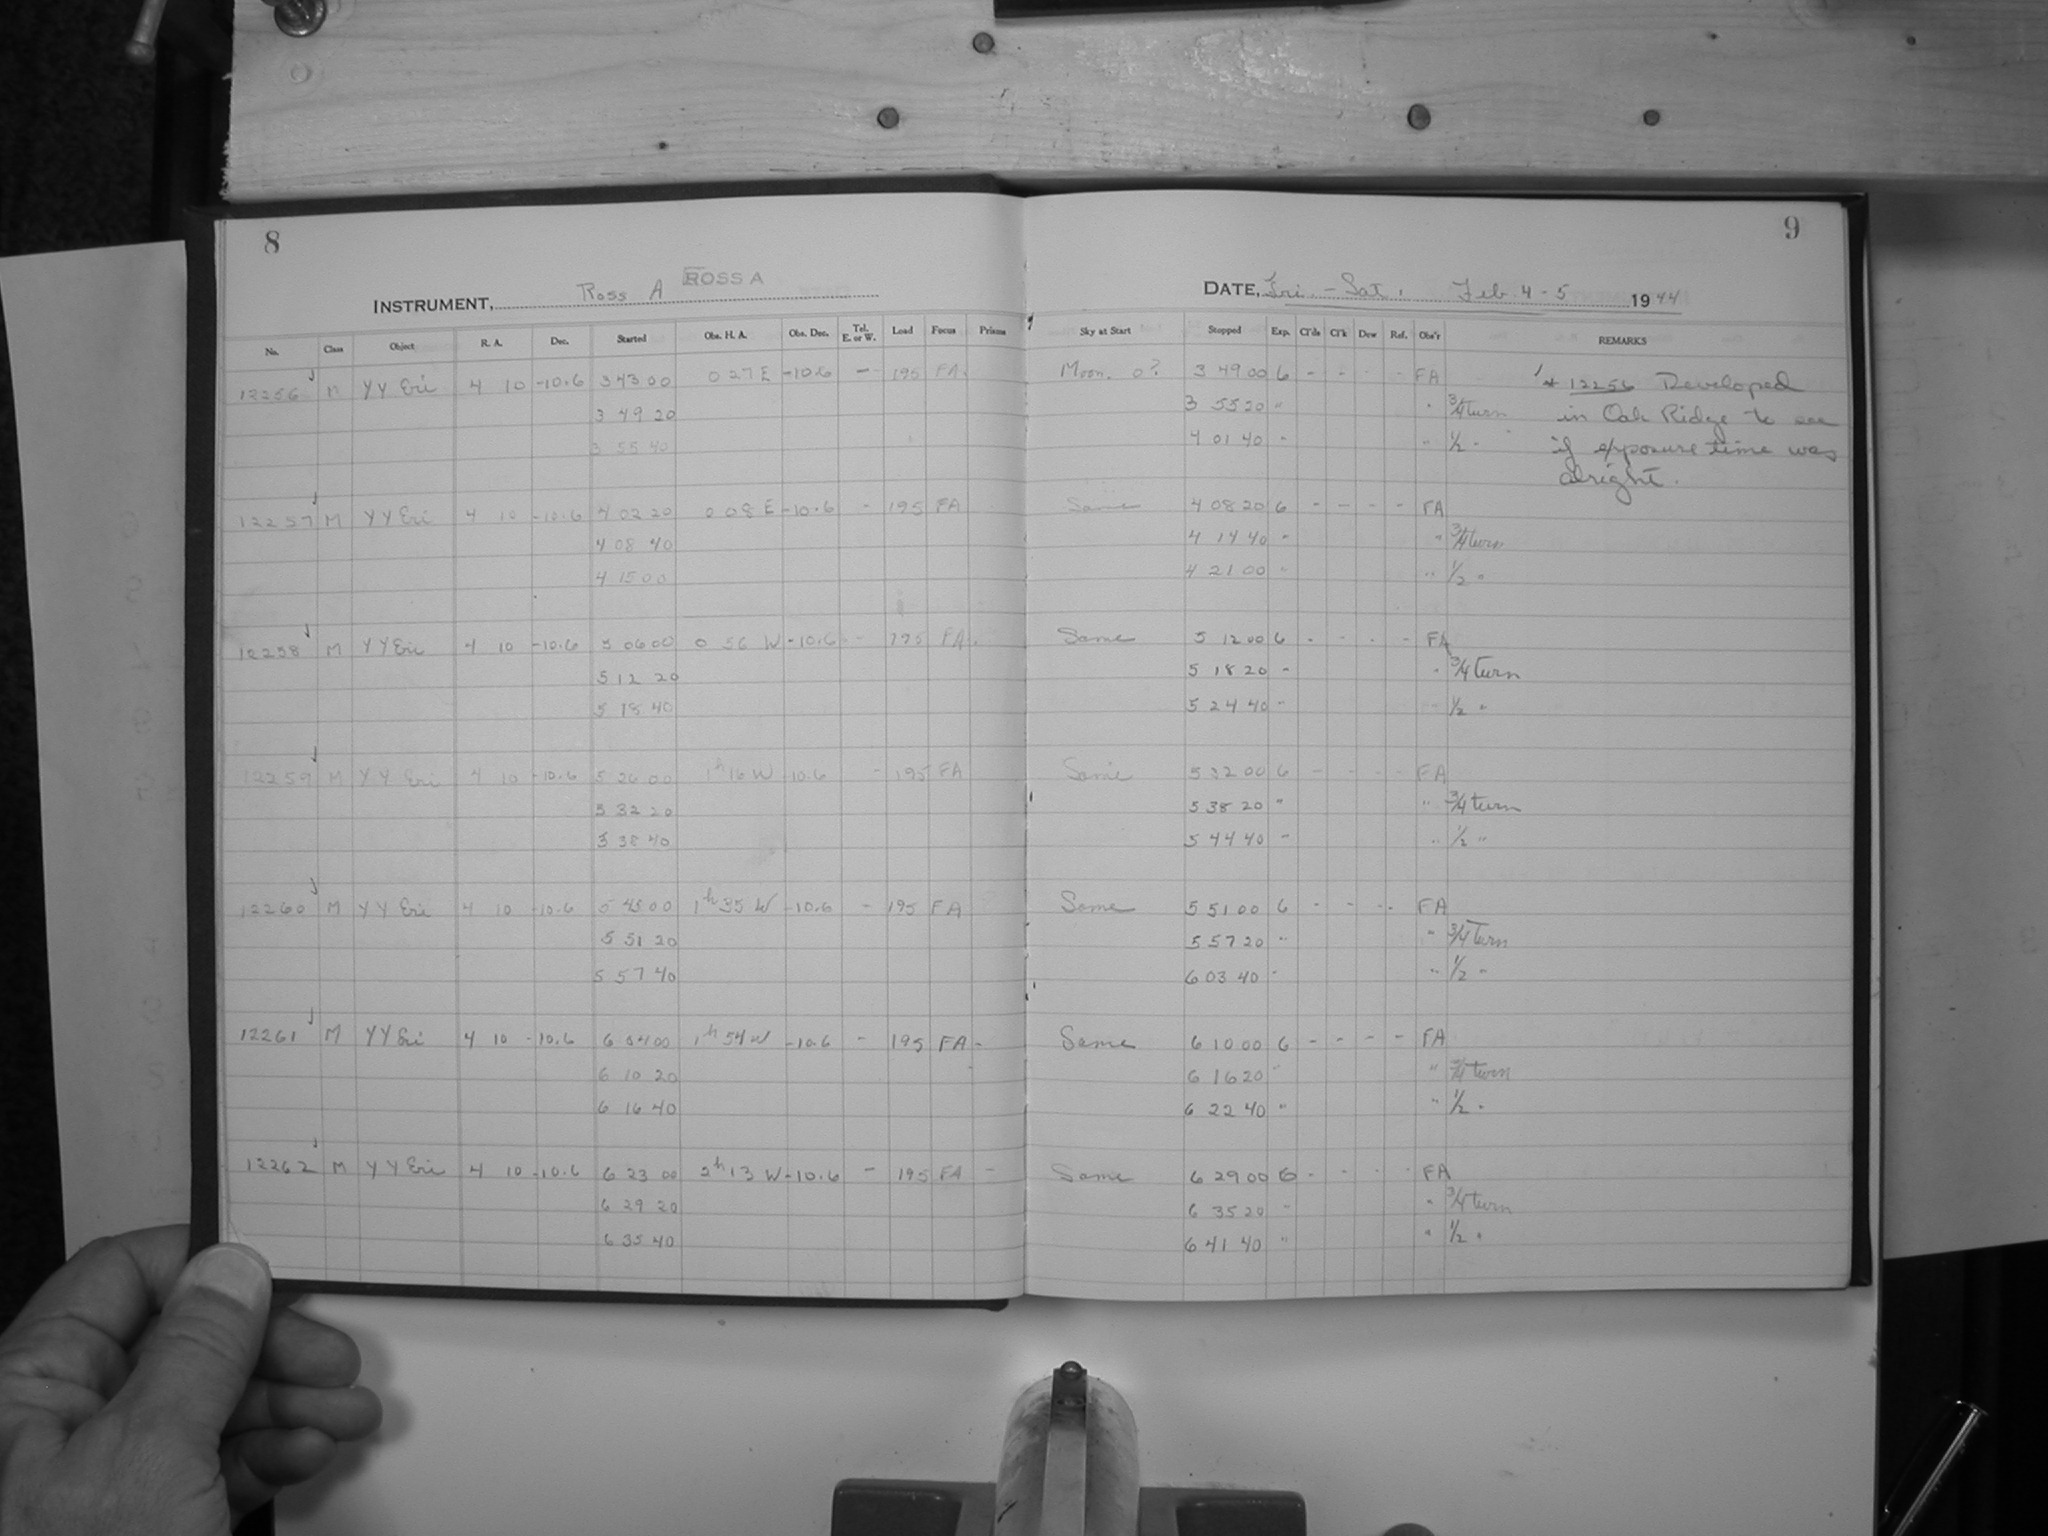 8
INSTRUMENT, Ross A ROSS A
No. Class Object R. A. Dec. Started Obs. H. A. Obs. Dec. Tel. E. or W. Load Focus Prisms
12256 M YY Eri 4 10 -10.6 3 43 00 0 27 E -10.6 - 195 FA
3 49 20
3 55 40
12257 M YY Eri 4 10 -10.6 4 02 20 0 08 E -10.6 - 195 FA
4 08 40
4 15 00
12258 M YY Eri 4 10 -10.6 5 06 00 0 56 W -10.6 - 195 FA
5 12 20
5 18 40
12259 M YY Eri 4 10 -10.6 5 26 00 1h 16 W 10.6 - 195 FA
5 32 20
5 38 40
12260 M YY Eri 4 10 -10.6 5 45 00 1h 35 W -10.6 - 195 FA
5 51 20
5 57 40
12261 M YY Eri 4 10 -10.6 6 04 00 1h 54 W -10.6 - 195 FA -
6 10 20
6 16 40
12262 M YY Eri 4 10 -10.6 6 23 00 2h 13 W -10.6 - 195 FA -
6 29 20
6 35 40
9
DATE, Fri. - Sat. Feb. 4 - 5 1944
Sky at Start Stopped Exp. Cl'ds Cl'k Dew Ref. Obs'r REMARKS
Moon. 0? 3 49 00 6 - - - FA * 12256 Developed
3 55 20 " " 3/4 turn in Oak Ridge to see
4 01 40 " " 1/2 " if exposure time was
alright.
Same 4 08 20 6 - - - - FA
4 14 40 " " 3/4 turn
4 21 00 " " 1/2 "
Same 5 12 00 6 - - - - FA
5 18 20 " " 3/4 turn
5 24 40 " " 1/2 "
Same 5 32 00 6 - - - - FA
5 38 20 " " 3/4 turn
5 44 40 " " 1/2 "
Same 5 51 00 6 - - - FA
5 57 20 " " 3/4 turn
6 03 40 " " 1/2 "
Same 6 10 00 6 - - - - FA
6 16 20 " " 3/4 turn
6 22 40 " " 1/2 "
Same 6 29 00 6 - - - - FA
6 35 20 " " 3/4 turn
6 41 40 " " 1/2 "